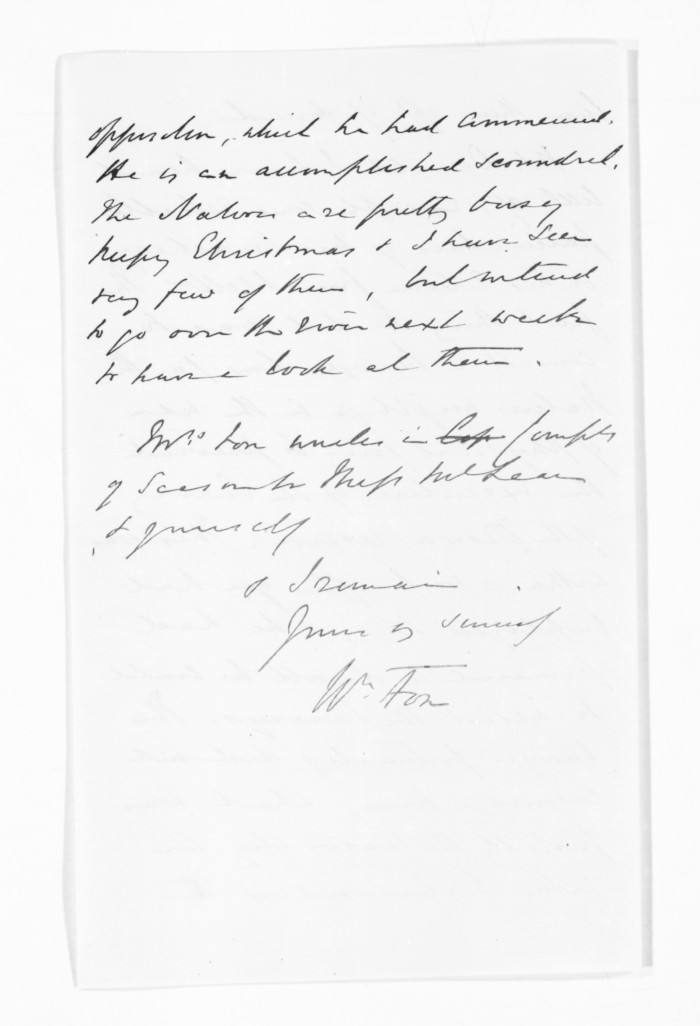 opposition, which he had commenced.
He is an accomplished scoundrel.
The Natives are pretty busy
keeping Christmas & I have seen
very few of them, but intend
to go over the river next week
to have a look at them.
Mrs Fox unites in Compts
of Season to Miss McLean
& yourself
& I remain
Yours very sincerely
Wm Fox